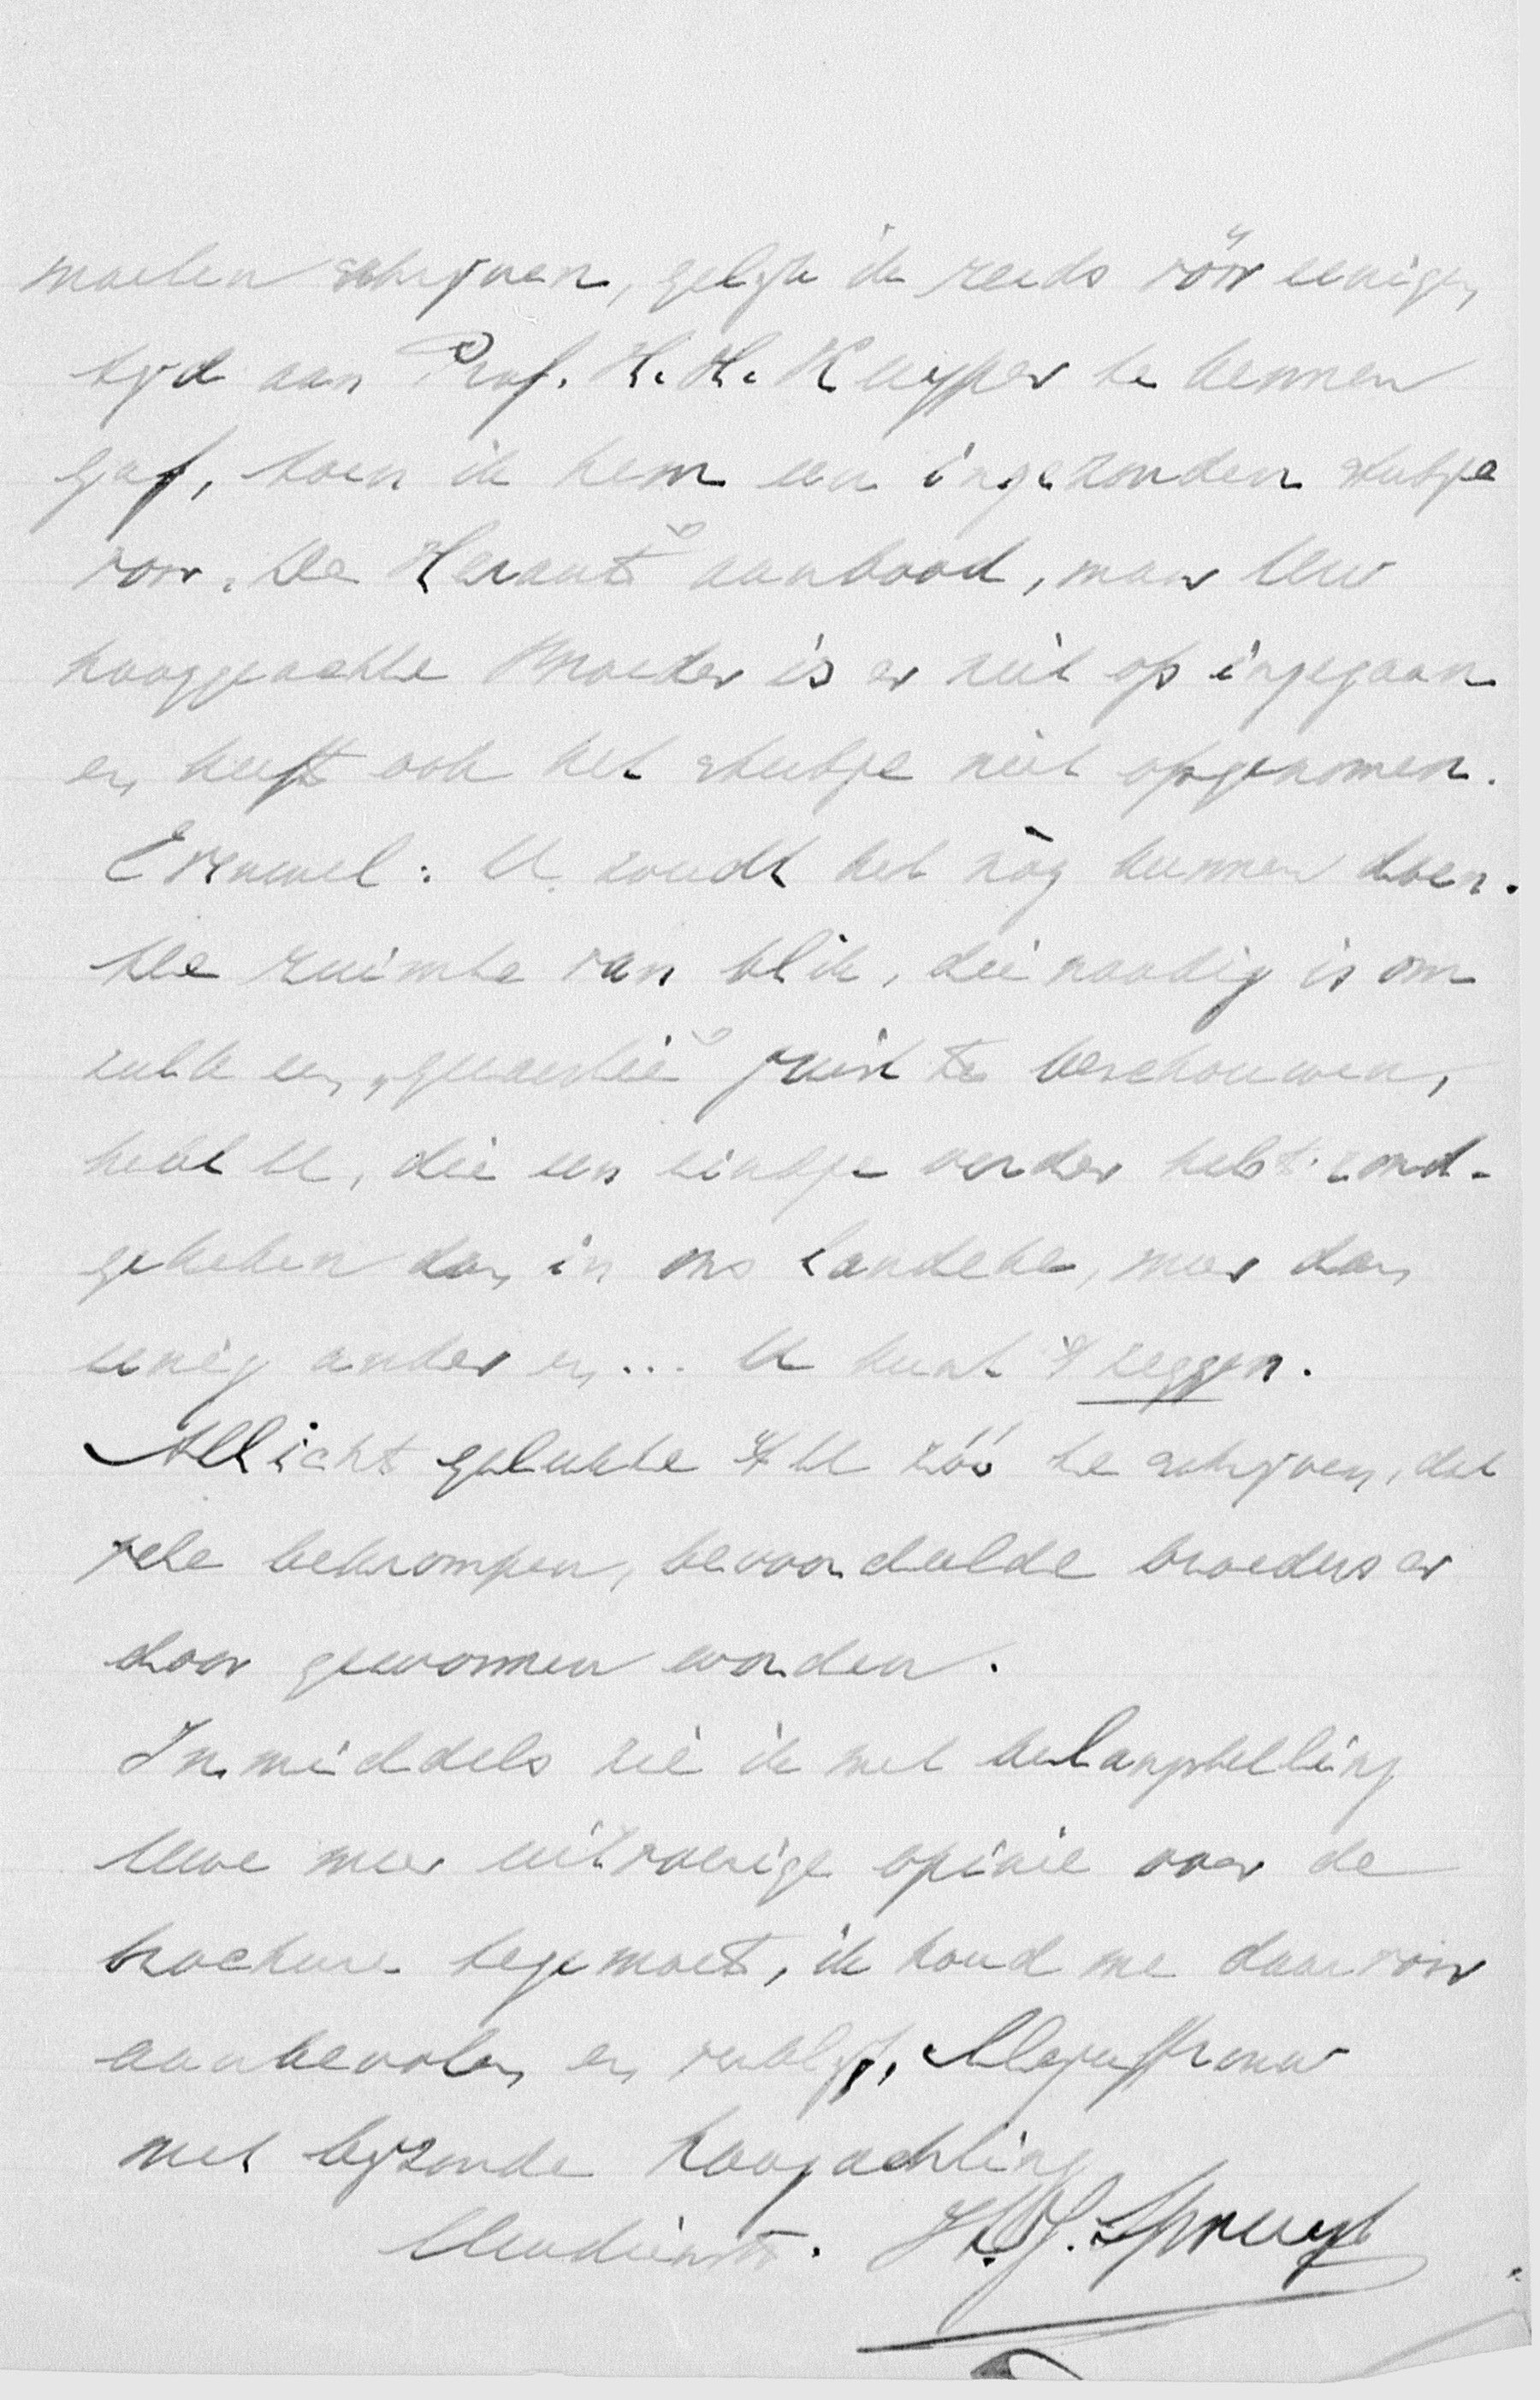 moeten schrijven, gelijk ik reeds vóór eenigen
tijd aan Prof. H.H. Kuyper te kennen
gaf, toen ik hem een ingezonden stukje
voor „De Heraut” aanbood, maar Uw
hooggeachte Broeder is er niet op ingegaan
en heeft ook het stukje niet opgenomen.
Evenwel: U zoudt het nòg kunnen doen.
De ruimte van blik, die noodig is om
zulk een „quaestie” juist te beschouwen,
hebt U, die een eindje verder hebt rond-
gekeken dan in ons landeke, meer dan
eenig ander en... U kunt 't zeggen.
Allicht gelukte 't U zóó te schrijven, dat
vele bekrompen, bevooroordeelde broeders er
door gewonnen worden.
Inmiddels zie ik met belangstelling
Uwe meer uitvoerige opinie over de
brochure tegemoet, ik houd me daarvoor
aanbevolen en verblijf, Mejuffrouw
met bijzonde hoogachting
Uwdienstw. H.J. Spruyt